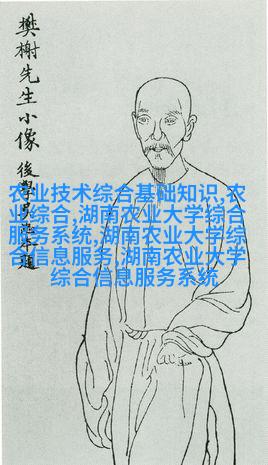 樊榭先生小像
後學
题
农业技术综合基础知识,农
业综合,湖南农业大学综合
服务系统,湖南农业大学综
合信息服务,湖南农业大学
综合信息服务系统